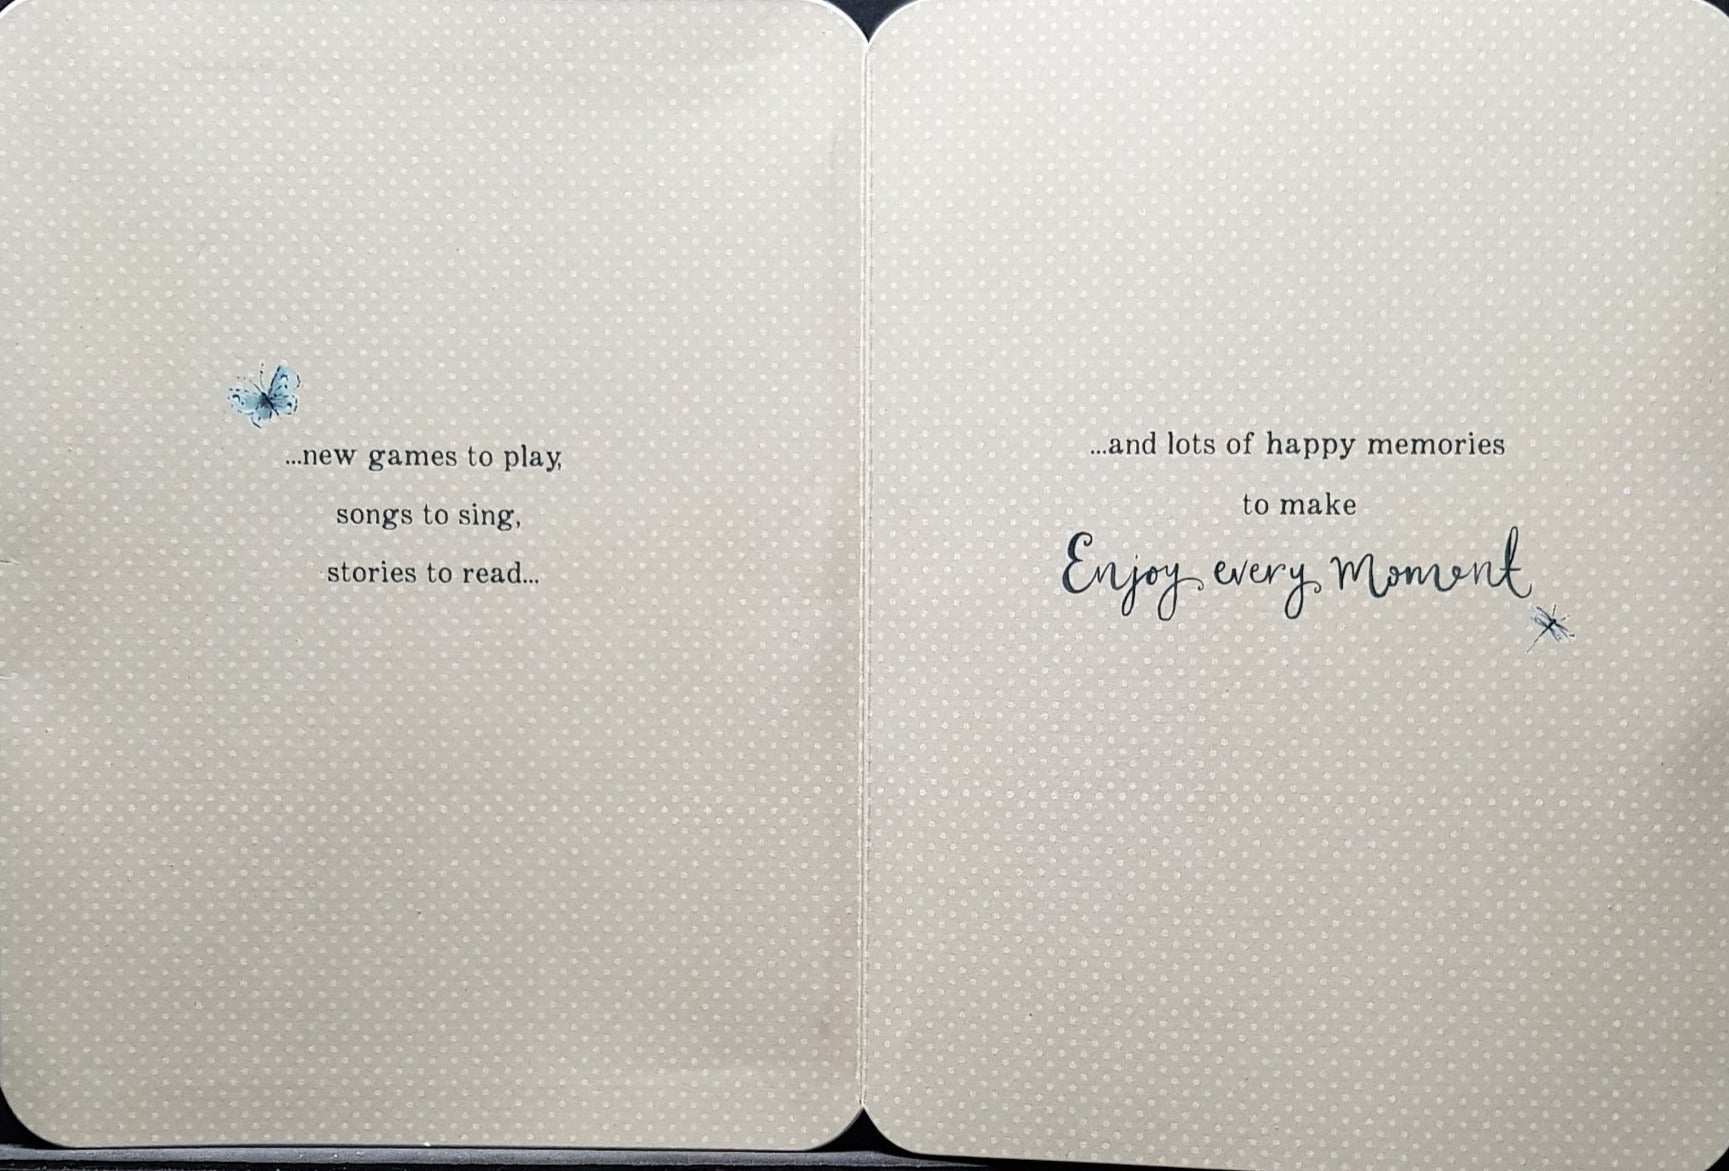 ...new games to play,
songs to sing,
stories to read...
...and lots of happy memories
to make
Enjoy every Moment